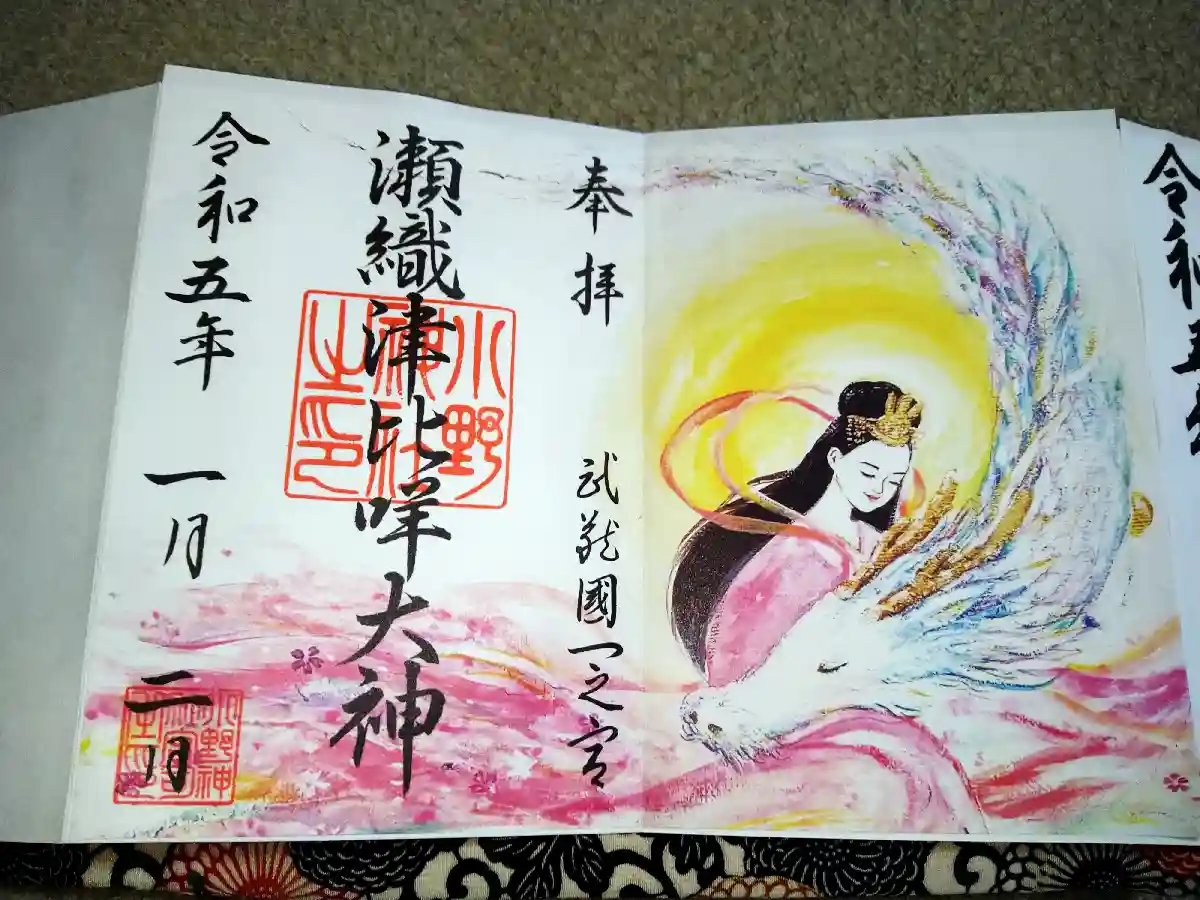 令和五年
奉拝
武蔵國一之宮
瀬織津比咩大神
小野神社之印
令和五年一月二日